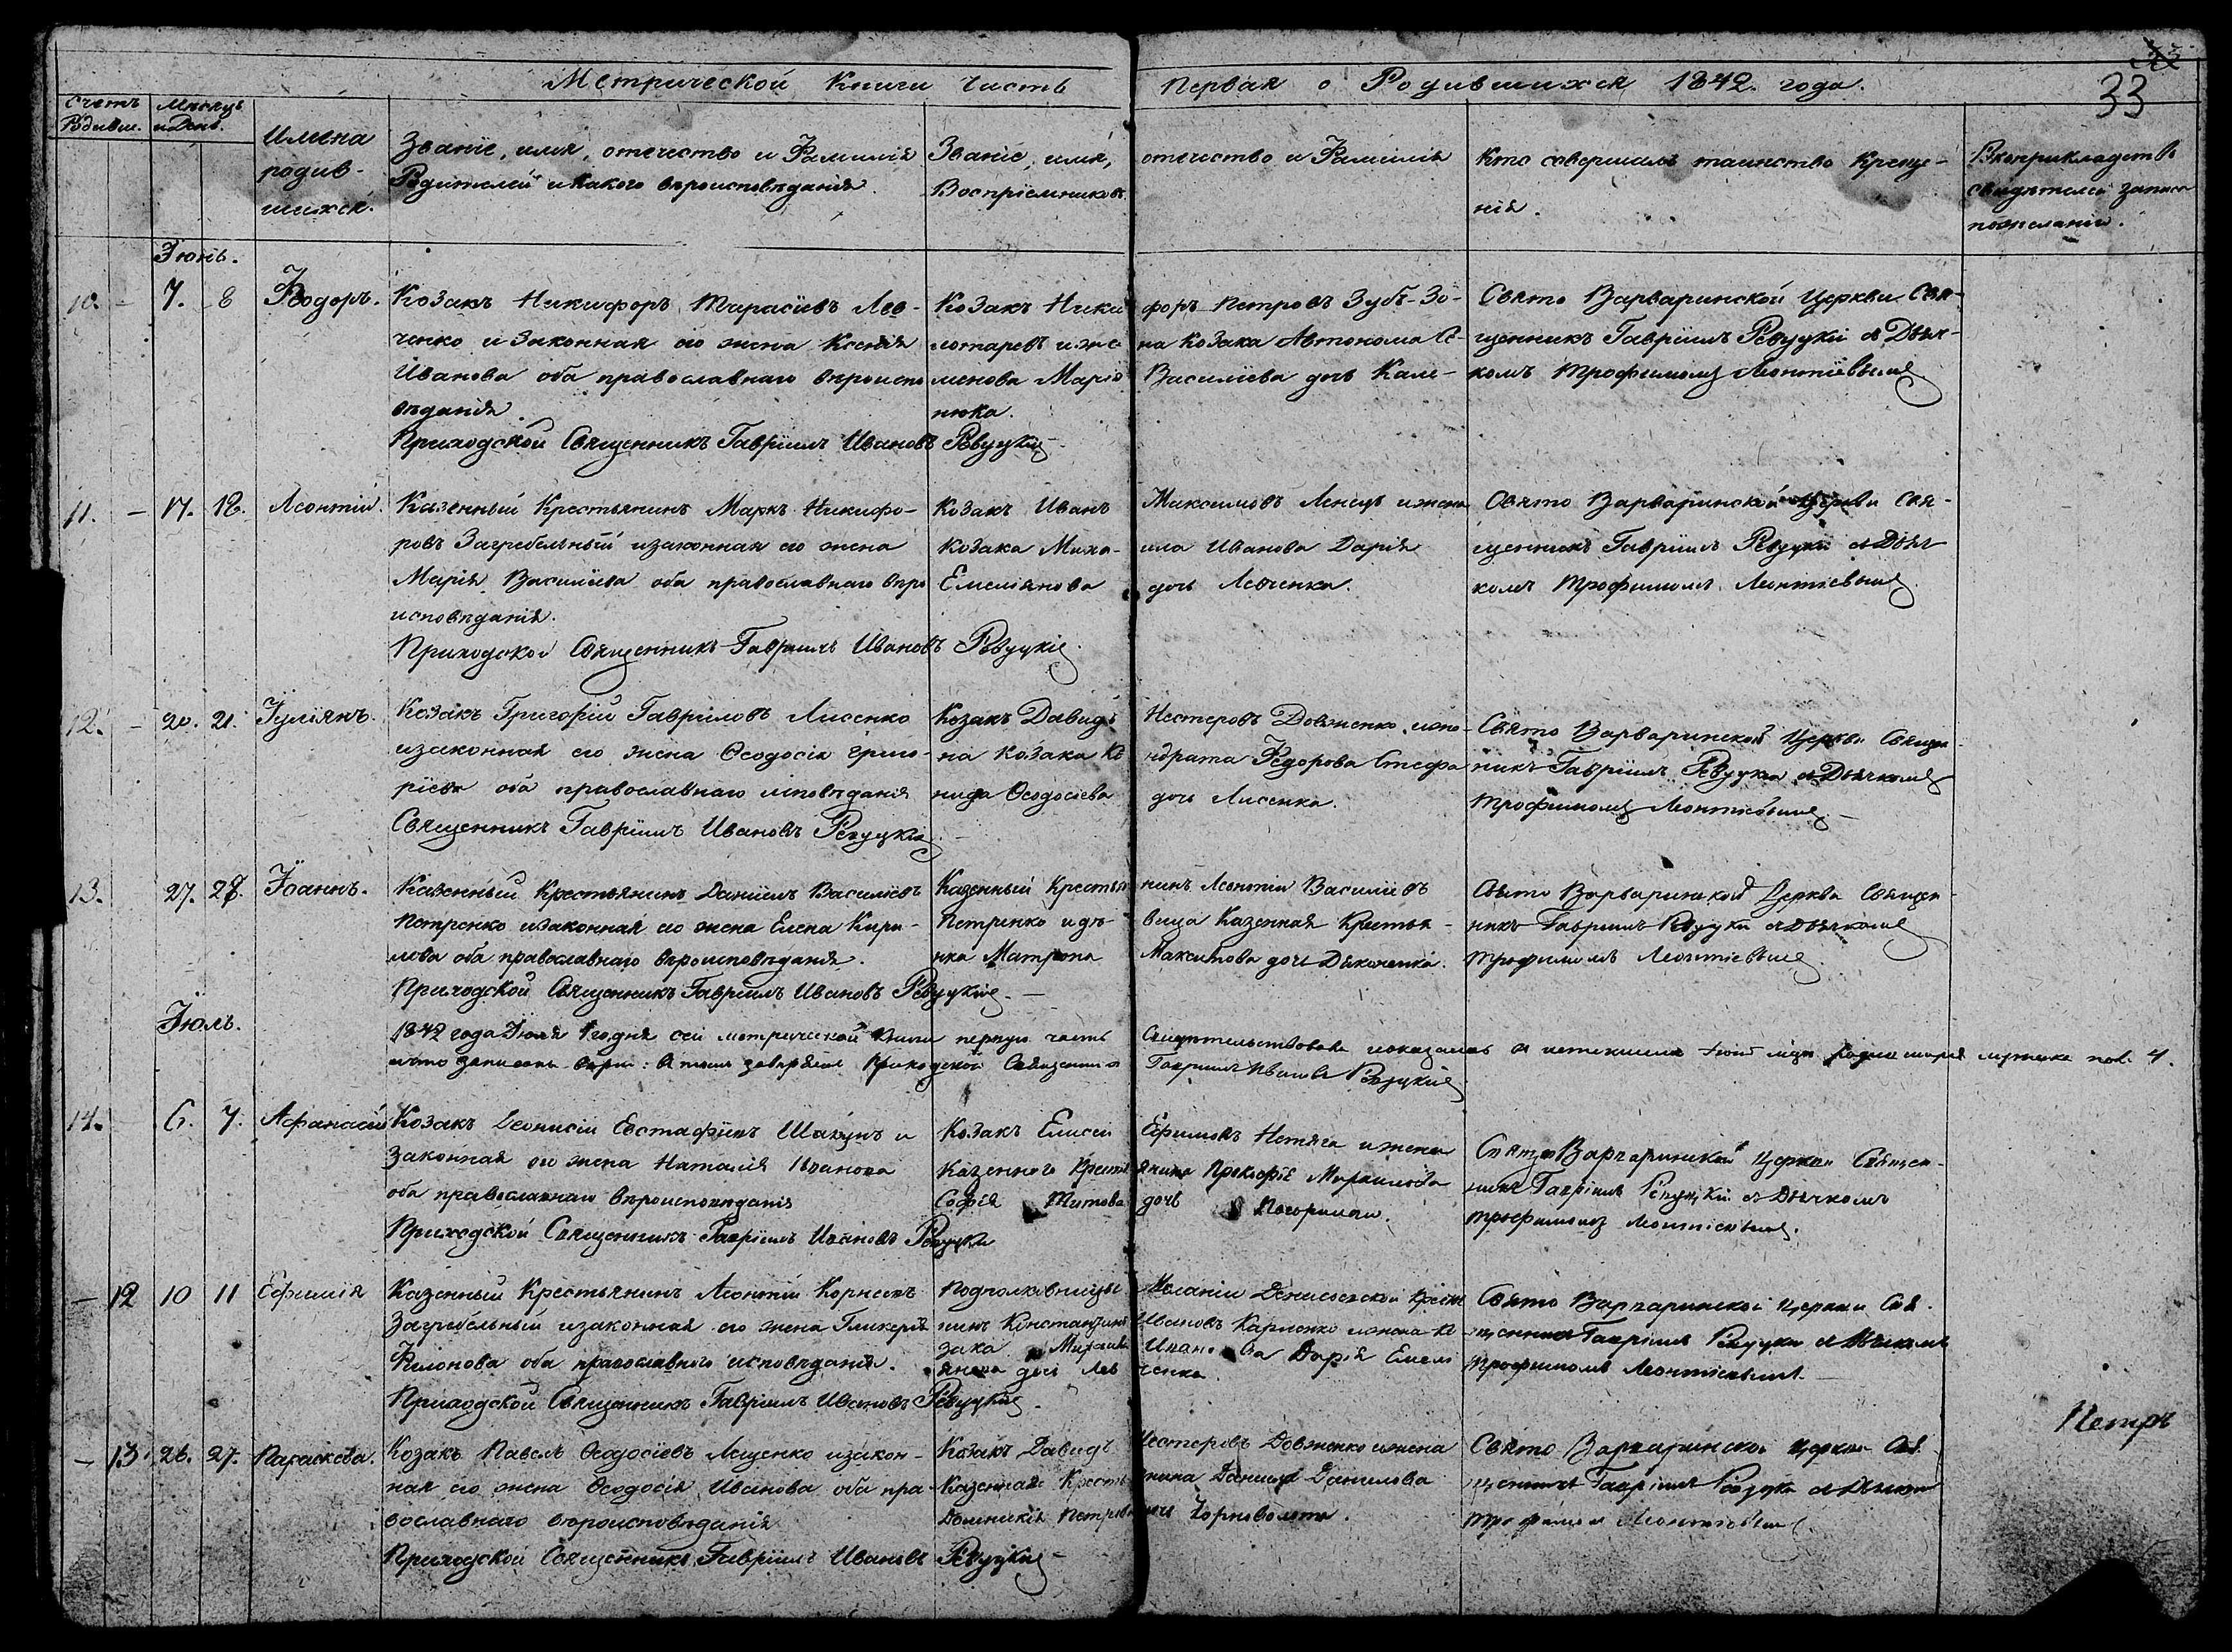 33
Метрической Книги Часть Первая о Родившихся 1842. года.
Счетъ Родивш.
Мѣсяцъ и День.
Имена родив-
шихся.
Званіе, имя, отечество и Фамилія
Родителей и какого вѣроисповѣданія.
Званіе, имя, отечество и Фамилія
Воспріемниковъ
Кто совершалъ таинство Креще-
нія.
свидѣтелей записи
Іюнь.
10. - 7. 8 Ѳеодоръ.
Козакъ Никифоръ Тарасіевъ Лев-
ченко и законная его жена Ксенія
Иванова оба православнаго вѣроиспо
вѣданія.
Приходской Священникъ Гавріилъ Ивановъ Ревуцкій
Козакъ Ники форъ Петровъ Зубъ-Зо-
лотаревъ и же на Козака Автонома Се-
менова Марія Васильева дочь Кале-
нюка.
Свято Варваринской Церкви Свя-
щенникъ Гавріилъ Ревуцкій съ Дьяч-
комъ Трофимомъ Леонтіевымъ
11. - 17. 18. Леонтій.
Казенный Крестьянинъ Маркъ Никифо-
ровъ Загребельный и законная его жена
Марія Василіева оба православнаго вѣро
исповѣданія.
Приходской Священникъ Гавріилъ Ивановъ Ревуцкій.
Козакъ Иванъ Максимовъ Ленецъ и жена
Козака Миха- ила Иванова Дарія
Емеліянова дочь Левченка.
Свято Варваринской Церкви Свя-
щенникъ Гавріилъ Ревуцкій съ Дьяч
комъ Трофимомъ Леонтіевымъ
12. - 20. 21. Іуліянъ.
Козакъ Григорій Гавриловъ Лисенко
и законная его жена Ѳеодосія Григо-
ріева оба православнаго исповѣданія
Священникъ Гавріилъ Ивановъ Ревуцкій
Козакъ Давидъ Нестеровъ Довженко и же-
на Козака Ко ндрата Федорова Стефа
нида Ѳеодосіева дочь Лисенка.
Свято Варваринской Церкви Священ
никъ Гавріилъ Ревуцкій съ Дьячкомъ
Трофимомъ Леонтіевымъ
13. 27. 28. Іоаннъ.
Казенный Крестьянинъ Даніилъ Василіевъ
Петренко и законная его жена Елена Кири-
лова оба православнаго вѣроисповѣданія.
Приходской Священникъ Гавріилъ Ивановъ Ревуцкій
Казенный Крестья нинъ Леонтій Василіевъ
Петренко и дѣ вица Казенная Крестья-
нка Матрона Максимова дочь Дьяченка.
Свято Варваринской Церкви Священ
никъ Гавріилъ Ревуцкій съ Дьячкомъ
Трофимомъ Леонтіевымъ
Іюль.
1842 года Іюля 1го дня сей метрической Книги первую часть
Приходской Священникъ Гавріилъ Ивановъ Ревуцкій
14. 6. 7. Афанасій
Козакъ Діонисій Евстафіевъ Шакунъ и
законная его жена Наталія Иванова
оба православнаго вѣроисповѣданія
Приходской Священникъ Гавріилъ Ивановъ Ревуцкій
Козакъ Елисей Ефимовъ Нетяга и жена
Казеннаго Кресть янина Прокофія Михаилова
Софія Титова дочь
Свято Варваринской Церкви Священ-
никъ Гавріилъ Ревуцкій съ Дьячкомъ
Трофимомъ Леонтіевымъ.
- 12 10 11 Ефимія
Казенный Крестьянинъ Леонтій Корнеевъ
Загребельный и законная его жена Гликерія
Филонова оба православнаго исповѣданія.
Приходской Священникъ Гавріилъ Ивановъ Ревуцкій
Подполковницы Меланіи Денисовской Кресть
нинъ Константинъ Ивановъ Карпенко и жена Ко
зака Михаила Иванова Дарія Емелі
янова дочь Лев ченка
Свято Варваринской Церкви Свя-
щенникъ Гавріилъ Ревуцкій съ Дьячкомъ
Трофимомъ Леонтіевымъ
Петръ
- 13. 26. 27. Параскева.
Козакъ Павелъ Ѳеодосіевъ Лещенко и закон-
ная его жена Ѳеодосія Иванова оба пра-
вославнаго вѣроисповѣданія
Приходской Священникъ Гавріилъ Ивановъ Ревуцкій
Козакъ Давидъ Нестеровъ Довженко и жена
Казеннаго Кресть янина Даніила Данилова
Домникія Петрова дочь
Свято Варваринской Церкви Свя
щенникъ Гавріилъ Ревуцкій съ Дьячкомъ
Трофимомъ Леонтіевымъ